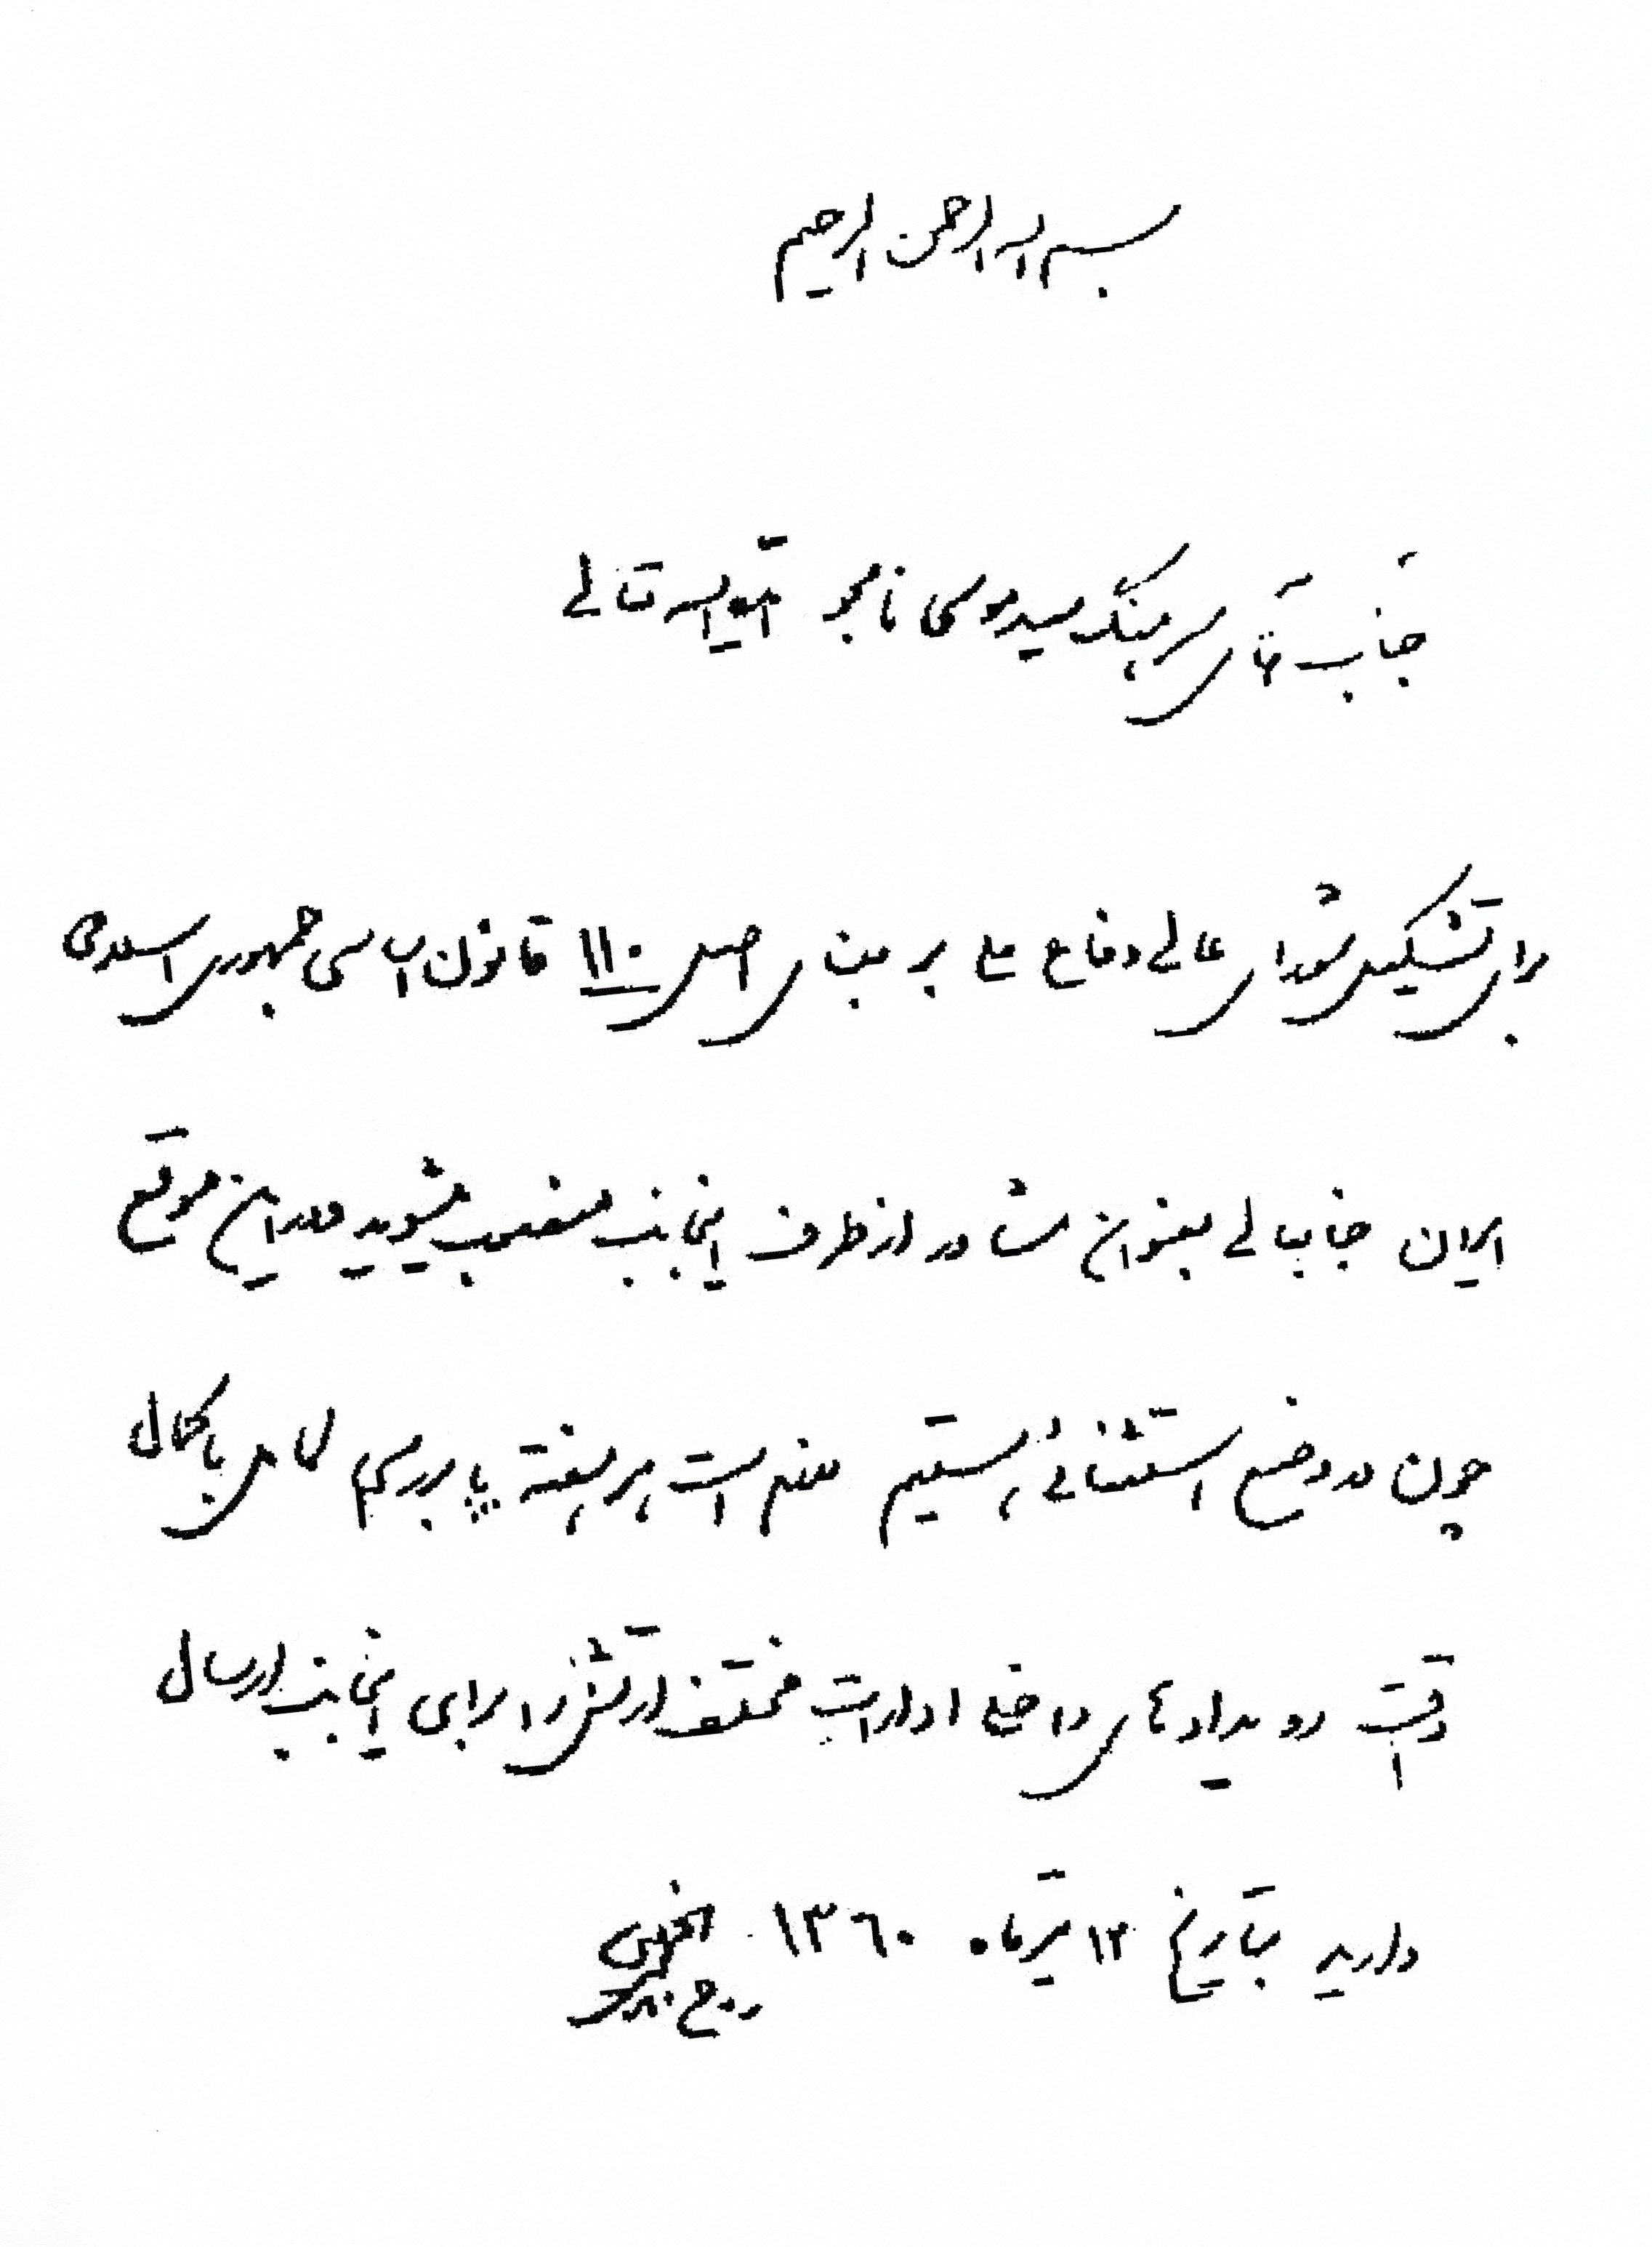 بسم الله الرحمن الرحیم
جناب آقای سرهنگ سید موسی نامجو ایده الله تعالی
برای تشکیل شورای عالی دفاع ملی بر مبنای اصل ۱۱۰ قانون اساسی جمهوری اسلامی
ایران جنابعالی بعنوان مشاور از طرف اینجانب منصوب میشوید و در این موقع
چون در وضع استثنائی هستیم لازم است هر هفته با بررسی کامل با کمال
دقت رویدادهای داخلی ادارات مختلف ارتش را برای اینجانب ارسال
دارید بتاریخ ۱۳ تیرماه ۱۳۶۰
روح الله الموسوی الخمینی